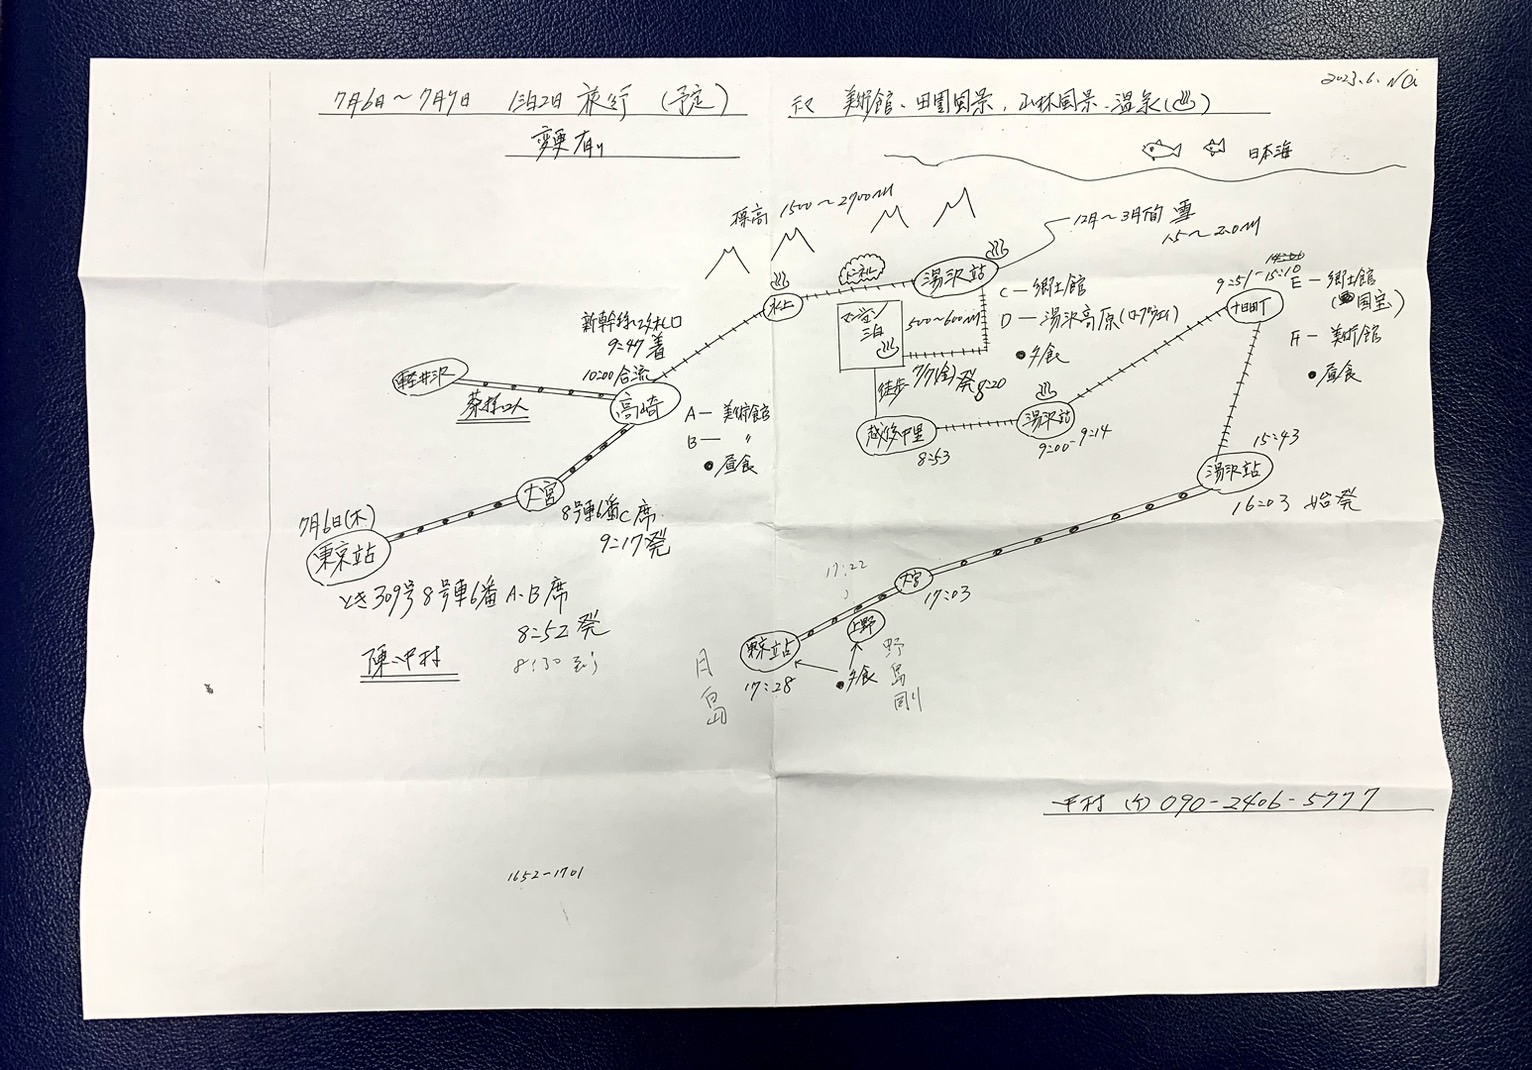 2023.6. No1
7月6日～7月7日 1泊2日 旅行 (予定)
変更有り
美術館、田園風景、山林風景、温泉(♨)
日本海
標高 1500～2700M
12月～3月旬 雪
1.5～2.0M
トンネル
湯沢站
水上
マンション
泊
500～600M
徒歩
7/7(金)発 8:20
C — 郷土館
D — 湯沢高原(ロープウェイ)
●夕食
14:00
9:51-15:10
十日町
E — 郷土館
(国宝)
F — 美術館
●昼食
新幹線
9:47着
10:00合流
軽井沢
高崎
A — 美術館
B — 〃
●昼食
越後中里
8:53
湯沢站
9:00-9:14
15:43
湯沢站
16:03 始発
大宮
8号車6番C席
9:17発
7月6日(木)
東京站
とき309号8号車6番A.B席
8:52発
8:30
陳、中村
大宮
17:03
17:22
上野
東京站
17:28
●夕食
月島
野島剛
中村 090-2406-5777
1652-1701